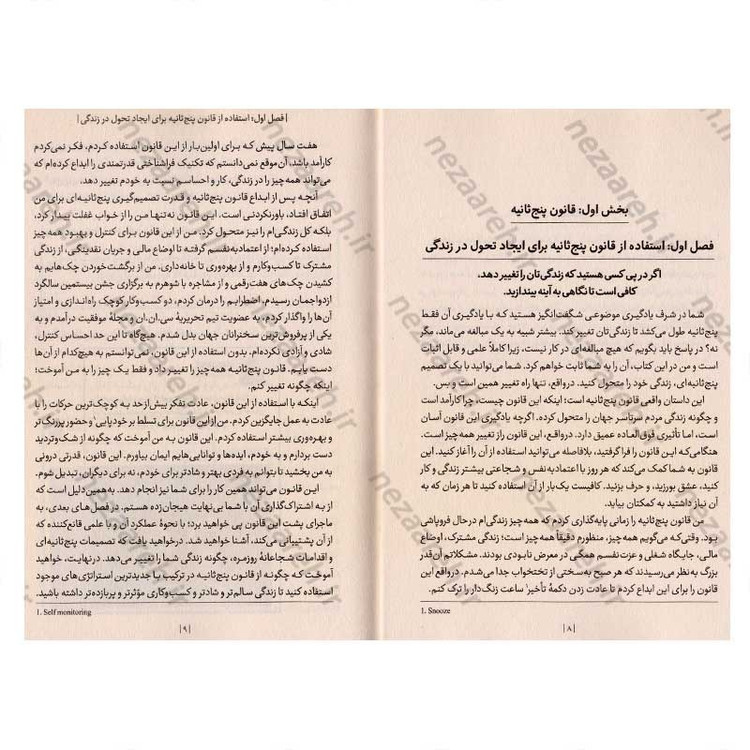 بخش اول: قانون پنج‌ثانیه
فصل اول: استفاده از قانون پنج‌ثانیه برای ایجاد تحول در زندگی
اگر در پی کسی هستید که زندگی‌تان را تغییر دهد،
کافی است تا نگاهی به آینه بیندازید.
شما در شرف یادگیری موضوعی شگفت‌انگیز هستید که با یادگیری آن فقط
پنج‌ثانیه طول می‌کشد تا زندگی‌تان تغییر کند. بیشتر شبیه به یک مبالغه می‌ماند، مگر
نه؟ در پاسخ باید بگویم که هیچ مبالغه‌ای در کار نیست، زیرا کاملاً علمی و قابل اثبات
است و من در این کتاب، آن را به شما ثابت خواهم کرد. شما می‌توانید با یک تصمیم
پنج‌ثانیه‌ای، زندگی خود را متحول کنید. درواقع، تنها راه تغییر همین است و بس.
این داستان واقعی قانون پنج‌ثانیه است؛ اینکه این قانون چیست، چرا کارآمد است
و چگونه زندگی مردم سرتاسر جهان را متحول کرده. اگرچه یادگیری این قانون آسان
است، اما تأثیری فوق‌العاده عمیق دارد. درواقع، این قانون راز تغییر همه‌چیز است.
هنگامی‌که این قانون را فرا گرفتید، بلافاصله می‌توانید استفاده از آن را آغاز کنید. این
قانون به شما کمک می‌کند که هر روز با اعتمادبه‌نفس و شجاعتی بیشتر زندگی و کار
کنید، عشق بورزید، و حرف بزنید. کافیست یک‌بار از آن استفاده کنید تا هر زمان که به
آن نیاز داشتید به کمکتان بیاید.
من قانون پنج‌ثانیه را زمانی پایه‌گذاری کردم که همه‌چیز زندگی‌ام درحال فروپاشی
بود. وقتی‌که می‌گویم همه‌چیز، منظورم دقیقاً همه‌چیز است؛ زندگی مشترک، اوضاع
مالی، جایگاه شغلی و عزت‌نفسم همگی در معرض نابودی بودند. مشکلاتم آن‌قدر
بزرگ به‌نظر می‌رسیدند که هر صبح به‌سختی از تختخواب جدا می‌شدم. درواقع این
قانون را برای این ابداع کردم تا عادت زدن دکمهٔ تأخیر¹ ساعت زنگ‌دار را ترک کنم.
1. Snooze
| ۸ |
| فصل اول: استفاده از قانون پنج‌ثانیه برای ایجاد تحول در زندگی |
هفت سال پیش که برای اولین‌بار از این قانون استفاده کردم، فکر نمی‌کردم
کارآمد باشد. آن‌موقع نمی‌دانستم که تکنیک فراشناختی قدرتمندی را ابداع کرده‌ام که
می‌تواند همه‌چیز را در زندگی، کار و احساسم نسبت به خودم تغییر دهد.
آنچه پس از ابداع قانون پنج‌ثانیه و قدرت تصمیم‌گیری پنج‌ثانیه‌ای برای من
اتفاق افتاد، باورنکردنی است. این قانون نه‌تنها من را از خواب غفلت بیدار کرد،
بلکه کل زندگی‌ام را نیز متحول کرد. من از این قانون برای کنترل و بهبود همه‌چیز
استفاده کرده‌ام؛ از اعتمادبه‌نفسم گرفته تا اوضاع مالی و جریان نقدینگی، از زندگی
مشترک تا کسب‌وکارم و از بهره‌وری تا خانه‌داری. من از برگشت‌خوردن چک‌هایم به
کشیدن چک‌های هفت‌رقمی و از مشاجره با شوهرم به برگزاری جشن بیستمین سالگرد
ازدواجمان رسیدم. اضطرابم را درمان کردم، دو کسب‌وکار کوچک راه‌اندازی و امتیاز
آن‌ها را واگذار کردم، به عضویت تیم تحریریهٔ سی.ان.ان و مجلهٔ موفقیت درآمدم و به
یکی از پرفروش‌ترین سخنرانان جهان بدل شدم. هیچ‌گاه تا این حد احساس کنترل،
شادی و آزادی نکرده‌ام. بدون استفاده از این قانون، نمی‌توانستم به هیچ‌کدام از آن‌ها
دست یابم. قانون پنج‌ثانیه همه‌چیز را تغییر داد و فقط یک چیز را به من آموخت؛
اینکه چگونه تغییر کنم.
اینکه با استفاده از این قانون، عادت تفکر بیش‌ازحد به کوچک‌ترین حرکات را با
عادت به عمل جایگزین کردم. من از این قانون برای تسلط بر خودپایی¹ و حضور پررنگ‌تر
و بهره‌وری بیشتر استفاده کردم. این قانون به من آموخت که چگونه از شک‌وتردید
دست بردارم و به خودم، ایده‌ها و توانایی‌هایم ایمان بیاورم. این قانون، قدرتی درونی
به من بخشید تا بتوانم به فردی بهتر و شادتر برای خودم، نه برای دیگران، تبدیل شوم.
این قانون می‌تواند همین کار را برای شما نیز انجام دهد. به‌همین دلیل است که
از به اشتراک‌گذاری آن با شما بی‌نهایت هیجان‌زده هستم. در فصل‌های بعدی، به
ماجرای پشت این قانون پی خواهید برد؛ با نحوهٔ عملکرد آن و با علمی قانع‌کننده که
از آن پشتیبانی می‌کند، آشنا خواهید شد. درخواهید یافت که تصمیمات پنج‌ثانیه‌ای
و اقدامات شجاعانهٔ روزمره، چگونه زندگی شما را تغییر می‌دهد. درنهایت، خواهید
آموخت که چگونه از قانون پنج‌ثانیه در ترکیب با جدیدترین استراتژی‌های موجود
استفاده کنید تا زندگی سالم‌تر و شادتر و کسب‌وکاری مؤثرتر و پربازده‌تر داشته باشید.
1. Self monitoring
| ۹ |
nezaareh.ir